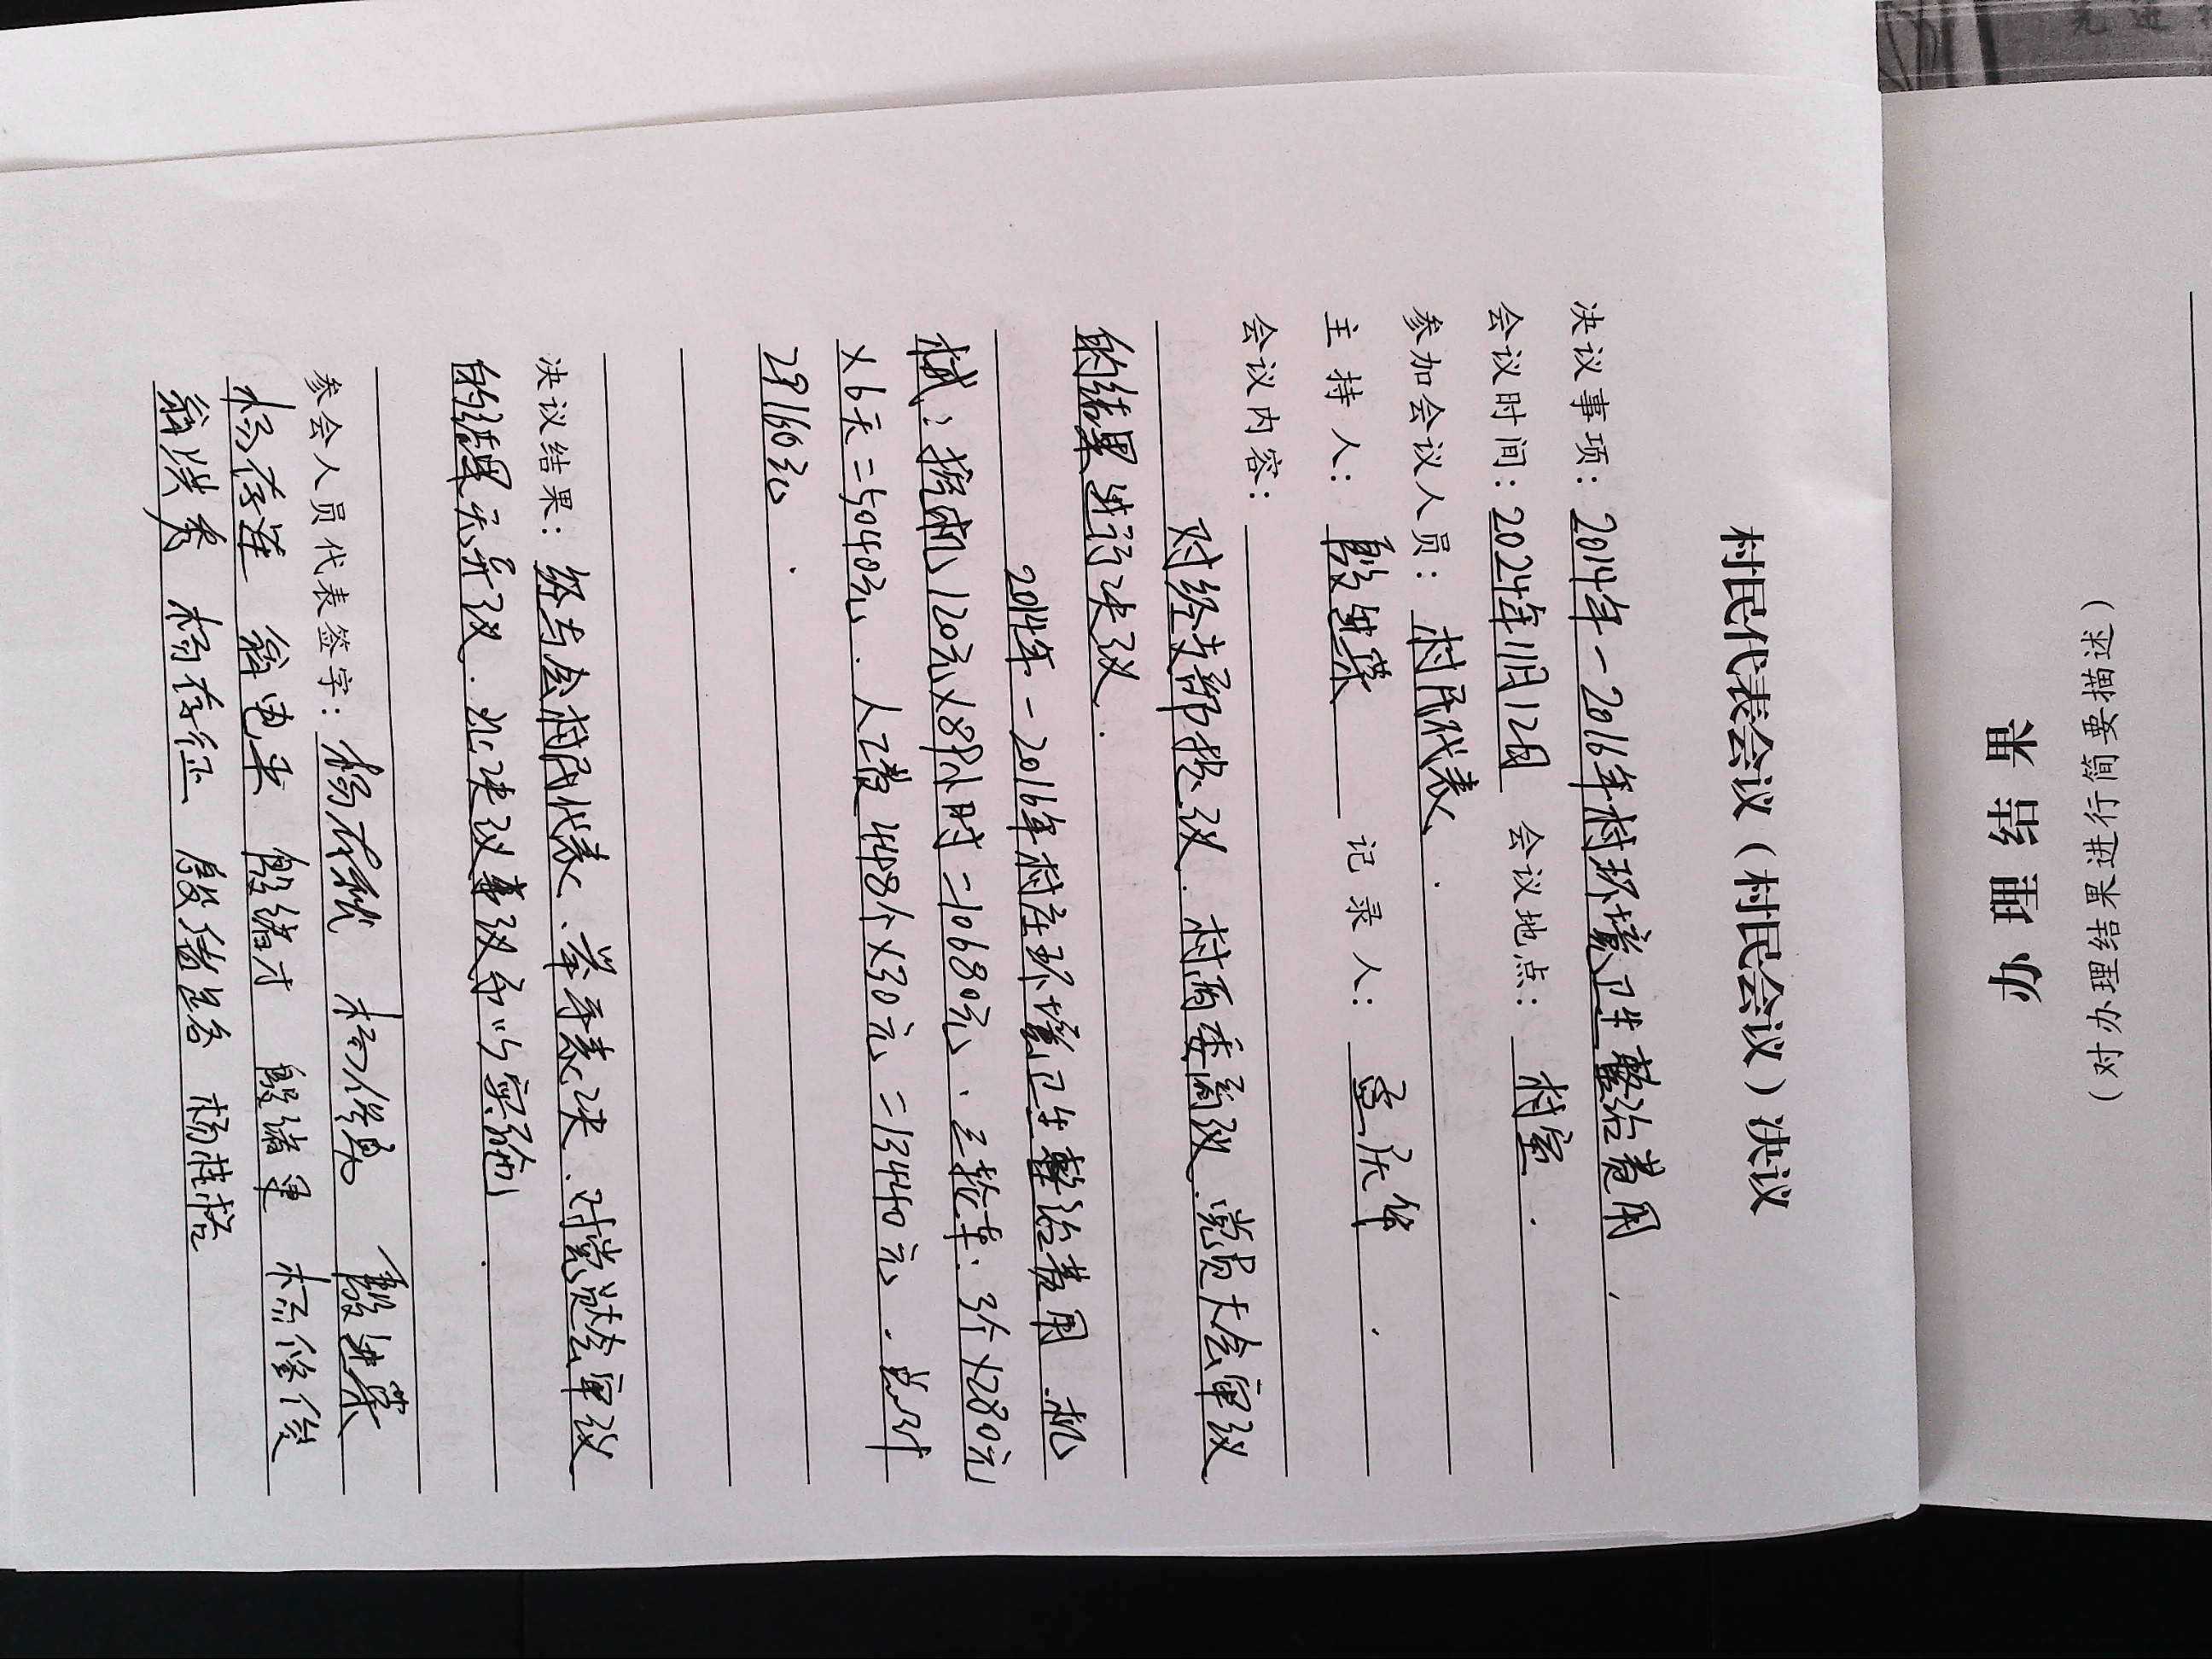 先进
办理结果
（对办理结果进行简要描述）
村民代表会议（村民会议）决议
决议事项：2014年-2016年村环境卫生整治费用.
会议时间：2024年11月12日 会议地点：村室.
参加会议人员：村民代表.
主持人：殷进荣 记录人：
会议内容：
对经支部提议.村两委商议.党员大会审议
的结果进行决议.
2014年-2016年村庄环境卫生整治费用.机
械：挖机120元×89小时=10680元、三轮车：3个×280元
×6天=5040元.人工费448个×30元=13440元.总计
29160元.
决议结果：经与会村民代表、举手表决.对党员大会审议
的结果无异议.此决议事项予以实施.
参会人员代表签字：殷进荣